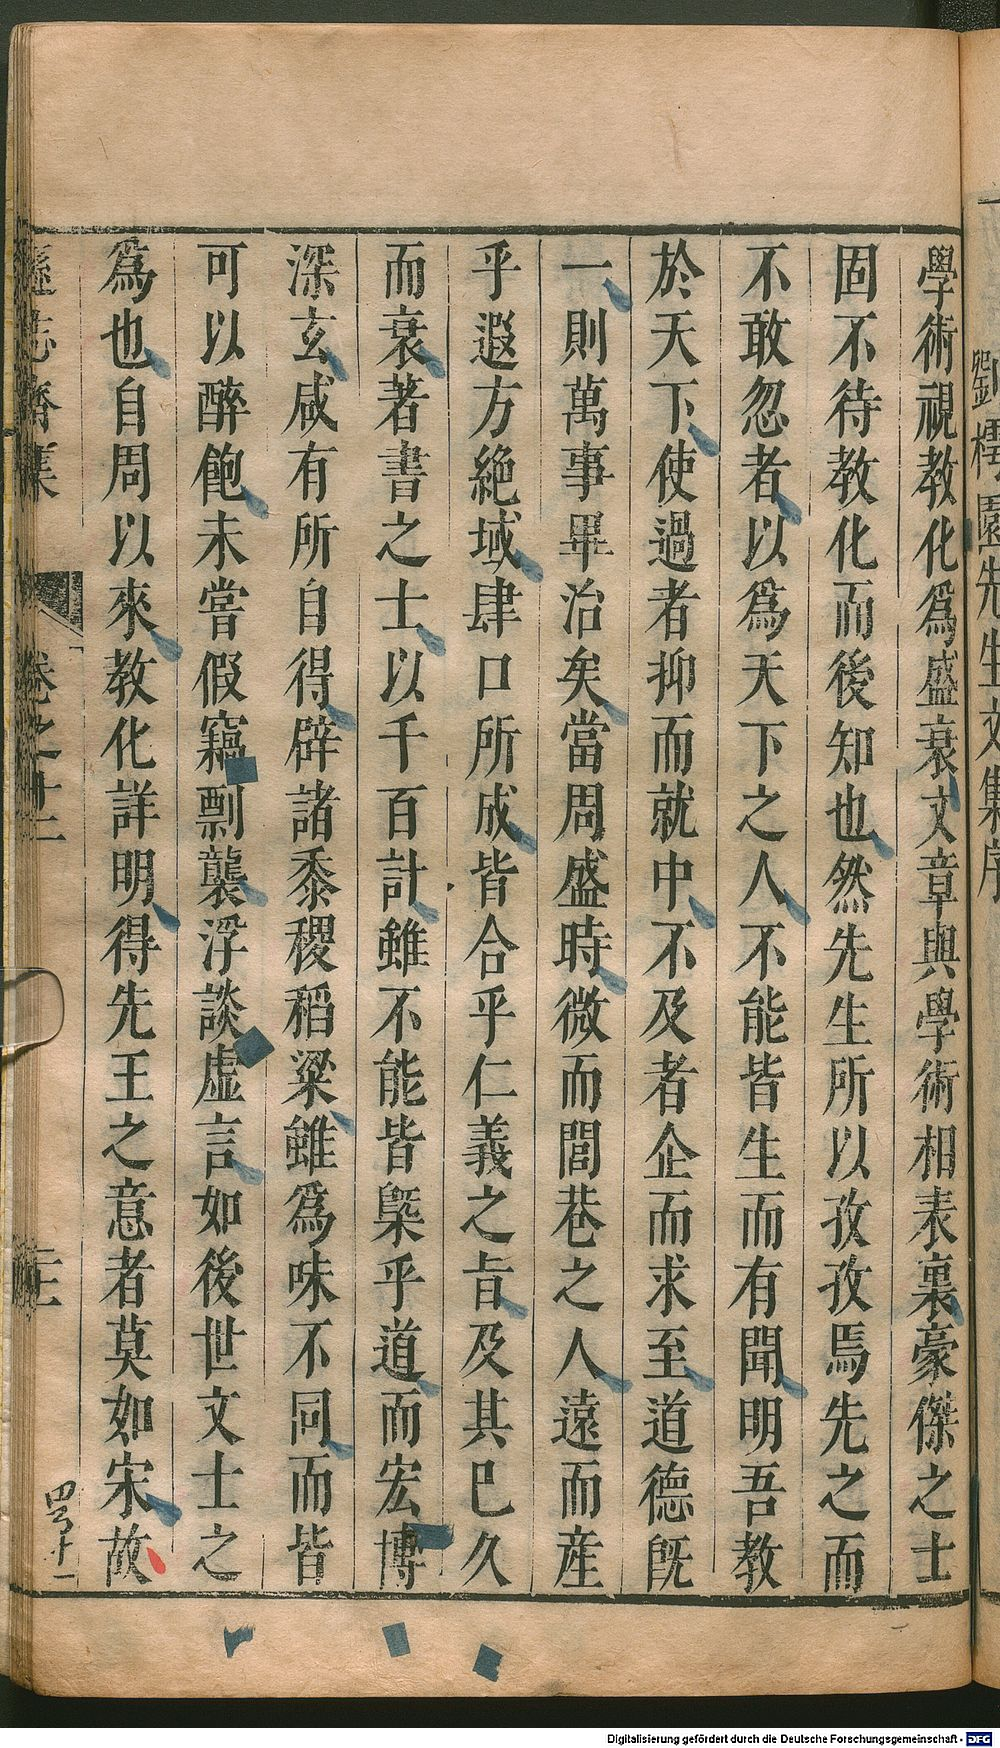 劉樗園先生文集序
學術視教化爲盛衰文章與學術相表裏豪傑之士
固不待教化而後知也然先生所以孜孜焉先之而
不敢忽者以爲天下之人不能皆生而有聞明吾教
於天下使過者抑而就中不及者企而求至道德旣
一則萬事畢治矣當周盛時微而閭巷之人遠而産
乎遐方絶域肆口所成皆合乎仁義之㫖及其巳久
而衰著書之士以千百計雖不能皆槩乎道而宏博
深玄咸有所自得辟諸黍稷稻粱雖爲味不同而皆
可以醉飽未嘗假竊剽襲浮談虚言如後世文士之
爲也自周以來教化詳明得先王之意者莫如宋故
遜志齋集
卷之十二
Digitalisierung gefördert durch die Deutsche Forschungsgemeinschaft - DFG